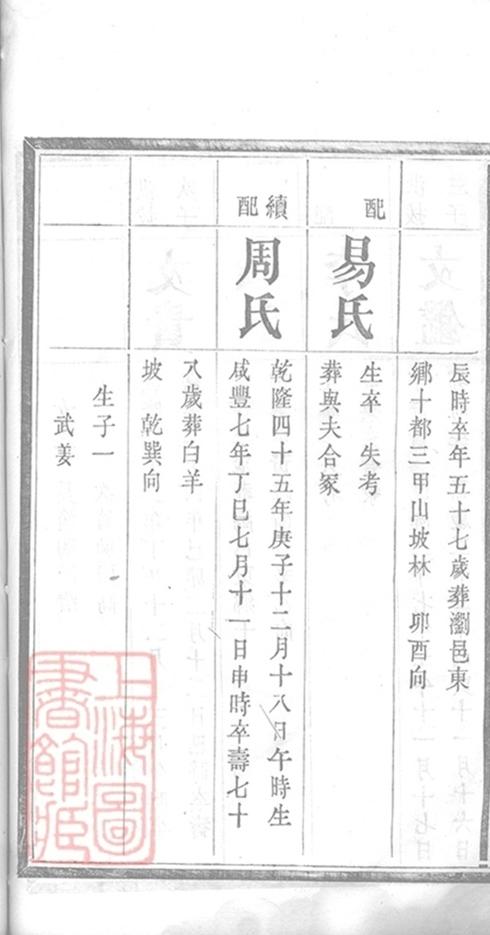 辰時卒年五十七歲葬瀏邑東
鄉十都三甲山坡林 卯酉向
配
易氏
生卒 失考
葬與夫合冢
續
配
周氏
乾隆四十五年庚子十二月十八日午時生
咸豐七年丁巳七月十一日申時卒壽七十
八歲葬白羊
坡 乾巽向
生子一
武姜
上海圖
書館藏